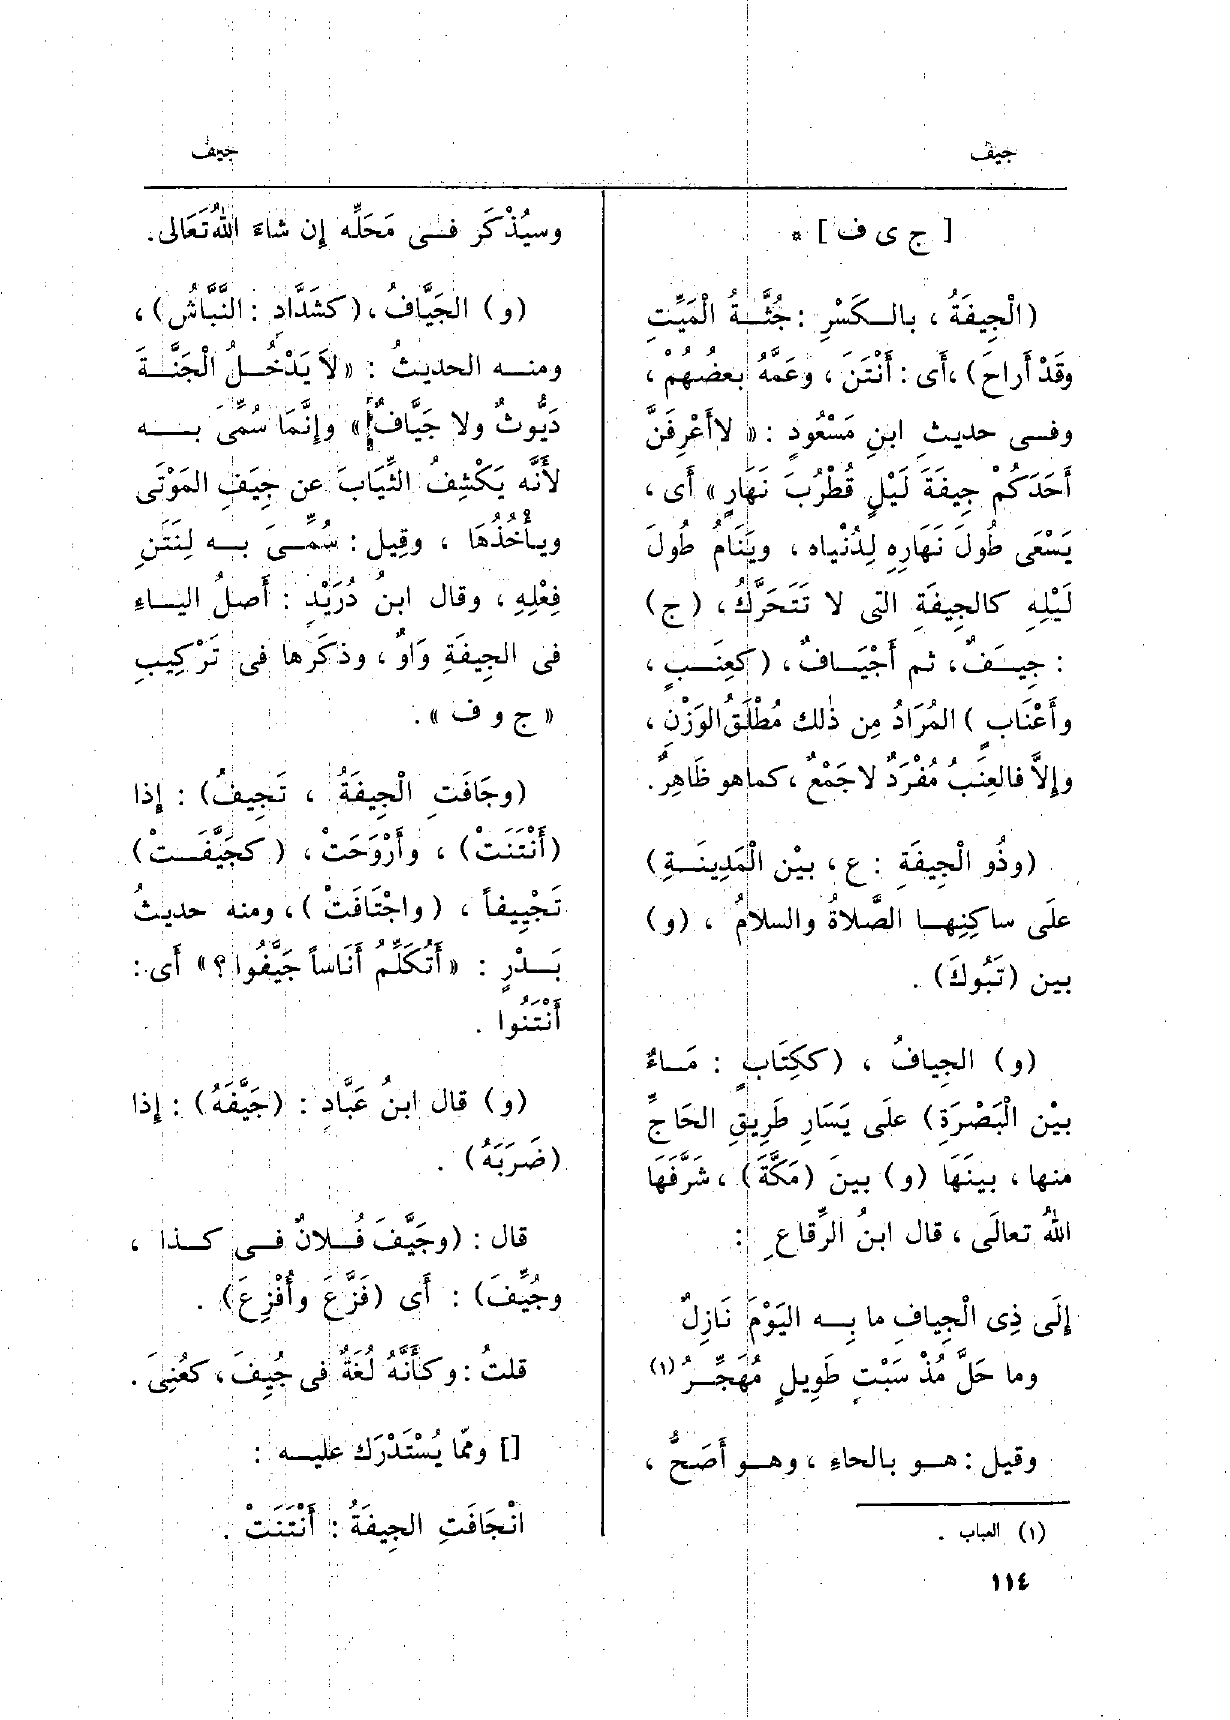 جيف
جيف
[ ج ى ف ] *
(الْجِيفَةُ ، بالـكَسْرِ : جُثَّــةُ الْمَيِّتِ
وقَدْ أَراحَ) ، أَى : أَنْتَنَ ، وعَمَّهُ بعضُهُمْ ،
وفــى حديثِ ابنِ مَسْعُودٍ : « لاأَعْرِفَنَّ
أَحَدَكُمْ جِيفَةَ لَيْلٍ قُطْرُبَ نَهَارٍ » أَى ،
يَسْعَى طُولَ نَهَارِهِ لِدُنْياه ، ويَنَامُ طُولَ
لَيْلِهِ كالجِيفَةِ التى لا تَتَحَرَّكُ ، (ج)
: جِيَــفٌ ، ثم أَجْيَــافٌ ، (كعِنَــبٍ ،
وأَعْنَابٍ ) المُرَادُ مِن ذٰلك مُطْلَقُ الوَزْنِ ،
وإِلاَّ فالعِنَبُ مُفْرَدٌ لاجَمْعٌ ، كماهو ظَاهِرٌ.
(وذُو الْجِيفَةِ : ع ، بَيْن الْمَدِينَــةِ)
علَى ساكِنِهــا الصَّلاةُ والسلامُ ، (و)
بين (تَبُوكَ) .
(و) الجِيافُ ، (ككِتَابٍ : مَــاءٌ
بيْن الْبَصْرَةِ) علَى يَسَارِ طَرِيقِ الحَاجِّ
منها ، بينَهَا (و) بينَ (مَكَّةَ) ، شَرَّفَهَا
اللهُ تعالَى ، قال ابنُ الرِّقاعِ :
إِلَى ذِى الْجِيافِ ما بِــه اليَوْمَ نَازِلٌ
وما حَلَّ مُذْ سَبْتٍ طَوِيلٍ مُهَجِّــرُ (١)
وقيل : هــو بالحاءِ ، وهــو أَصَحُّ ،
(١) العباب .
١١٤
وسيُذْكَر فــى مَحَلِّه إِن شاءَ اللهُ تَعَالى.
(و) الجَيَّافُ ، (كشَدَّادٍ : النَّبَّاشُ) ،
ومنــه الحديثُ : « لاَ يَدْخُــلُ الْجَنَّــةَ
دَيُّوثٌ ولا جَيَّافٌ » وإِنَّمَا سُمِّىَ بِــه
لأَنَّه يَكْشِفُ الثِّيَابَ عن جِيَفِ المَوْتَى
ويأْخُذُهَا ، وقِيل : سُمِّــىَ بــه لِنَتَنِ
فِعْلِهِ ، وقال ابنُ دُرَيْدٍ : أَصلُ اليــاءِ
فى الجِيفَةِ وَاوٌ ، وذكَرها فى تَرْكِيبِ
« ج و ف » .
(وجَافَتِ الْجِيفَةُ ، تَجِيفُ) : إِذا
(أَنْتَنَتْ) ، وأَرْوَحَتْ ، (كجَيَّفَــتْ)
تَجْيِيفاً ، (واجْتَافَتْ) ، ومنه حديثُ
بَــدْرٍ : « أَتُكَلِّمُ أُنَاساً جَيَّفُوا ؟ » أَى :
أَنْتَنُوا .
(و) قال ابنُ عَبَّادٍ : (جَيَّفَهُ) : إِذا
(ضَرَبَهُ) .
قال : (وجَيَّفَ فُــلانٌ فــى كــذا ،
وجُيِّفَ) : أَى (فَزَّعَ وأُفْزِعَ) .
قلتُ : وكأَنَّهُ لُغَةٌ فى جُيِفَ ، كعُنِىَ .
[] وممّا يُسْتَدْرَك عليــه :
انْجَافَتِ الجِيفَةُ : أَنْتَنَتْ .